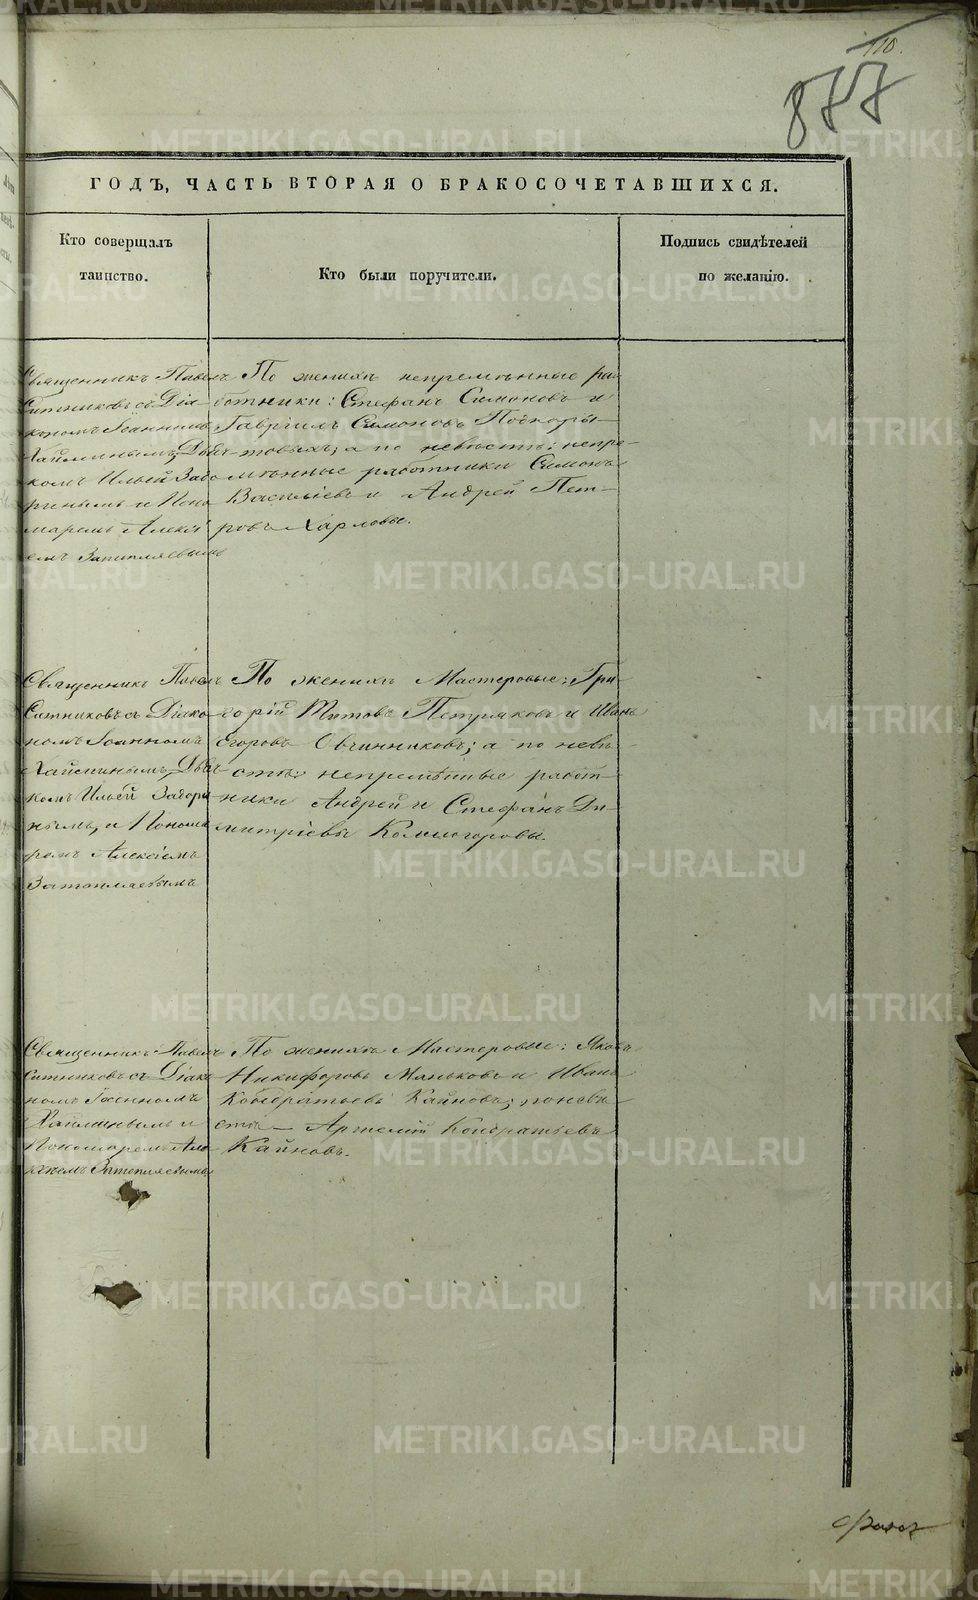 110.
877
ГОДЪ, ЧАСТЬ ВТОРАЯ О БРАКОСОЧЕТАВШИХСЯ.
Кто совершалъ
таинство.
Кто были поручители.
Подпись свидѣтелей
по желанію.
Священникъ Павелъ
Ситниковъ съ Діа-
кономъ Іоанномъ
Хайминымъ, Дьяч-
комъ Ильей Задо-
ринымъ и Поно-
маремъ Алексі-
емъ Затопляевымъ
По женихѣ непремѣнные ра-
ботники: Стефанъ Симоновъ и
Гавріилъ Симоновъ Подкоры-
товы, а по невѣстѣ: непре-
мѣнные работники Симонъ
Васильевъ и Андрей Пет-
ровъ Харловы.
Священникъ Павелъ
Ситниковъ съ Діако-
номъ Іоанномъ
Хайминымъ, Дьяч-
комъ Ильей Задори-
нымъ, и Понома-
ремъ Алексіемъ
Затопляевымъ
По женихѣ Мастеровые: Гри-
горій Титовъ Петряковъ и Иванъ
Егоровъ Овчинниковъ; а по невѣ-
стѣ: непремѣнные работ-
ники Андрей и Стефанъ Ди-
митріевы Комлогоровы.
Священникъ Павелъ
Ситниковъ съ Діако-
номъ Іоанномъ
Хайминымъ и
Пономаремъ Але-
ксіемъ Затопляевымъ
По женихѣ Мастеровые: Яковъ
Никифоровъ Маньковъ и Иванъ
Кондратьевъ Кайновъ; по невѣ-
стѣ — Артемій Кондратьевъ
Кайновъ.
METRIKI.GASO-URAL.RU